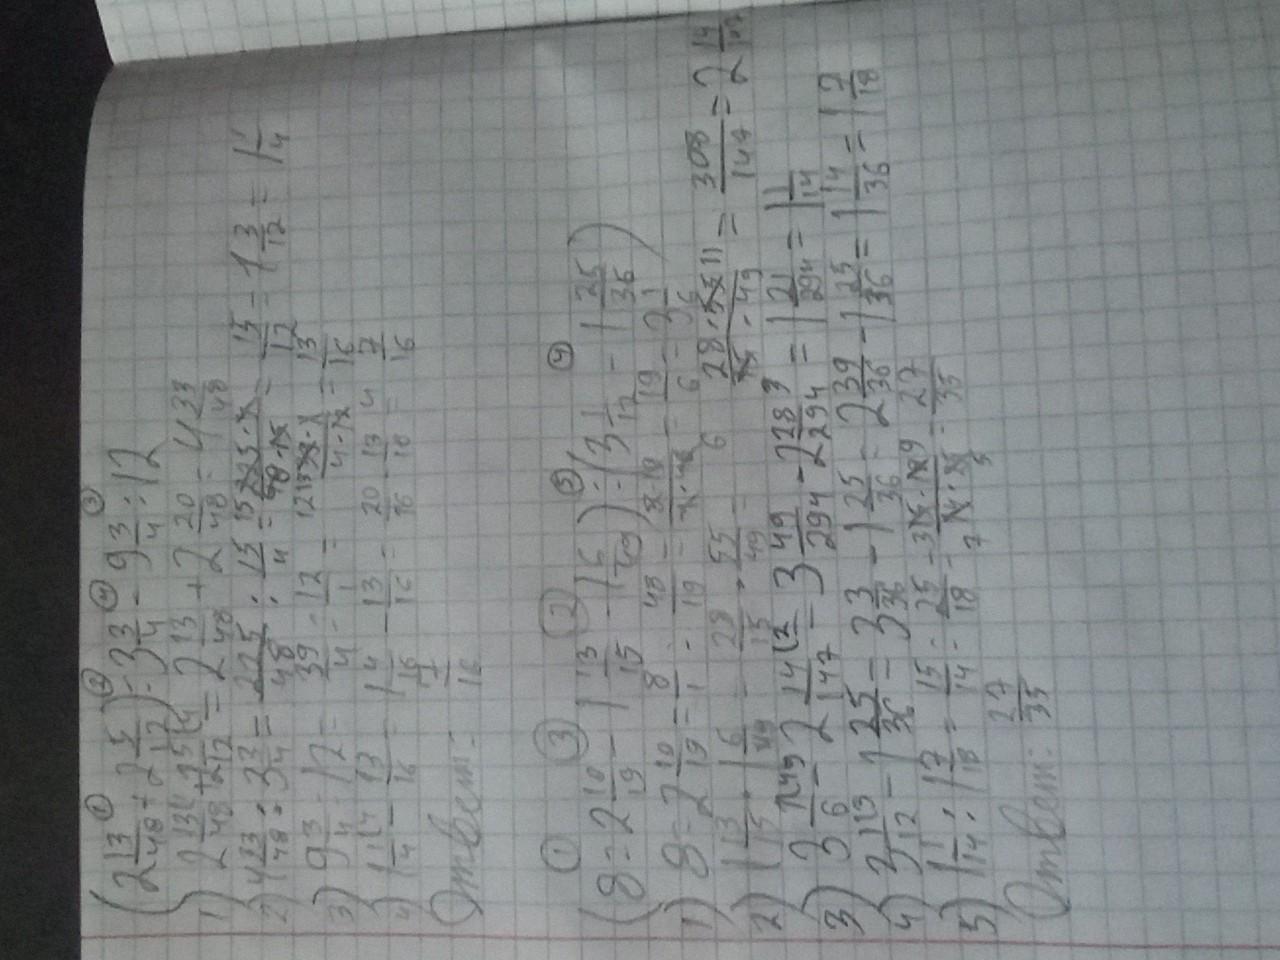 (2 13/48 + 2 5/12) : 3 3/4 - 9 3/4 : 12
1) 2 13/48 + 2 5/12 = 2 13/48 + 2 20/48 = 4 33/48
2) 4 33/48 : 3 3/4 = 225/48 : 15/4 = 15/12 = 1 3/12 = 1 1/4
3) 9 3/4 : 12 = 39/4 : 12/1 = 13/16
4) 1 1/4 - 13/16 = 1 4/16 - 13/16 = 20/16 - 13/16 = 7/16
Ответ: 7/16
(8 : 2 10/19 - 1 13/15 · 1 6/49) : (3 1/12 - 1 25/36)
1) 8 : 2 10/19 = 8/1 : 48/19 = 19/6 = 3 1/6
2) 1 13/15 · 1 6/49 = 28/15 · 55/49 = 308/147 = 2 14/147
3) 3 1/6 - 2 14/147 = 3 49/294 - 2 28/294 = 1 21/294 = 1 1/14
4) 3 1/12 - 1 25/36 = 3 3/36 - 1 25/36 = 2 39/36 - 1 25/36 = 1 14/36 = 1 7/18
5) 1 1/14 : 1 7/18 = 15/14 : 25/18 = 27/35
Ответ: 27/35